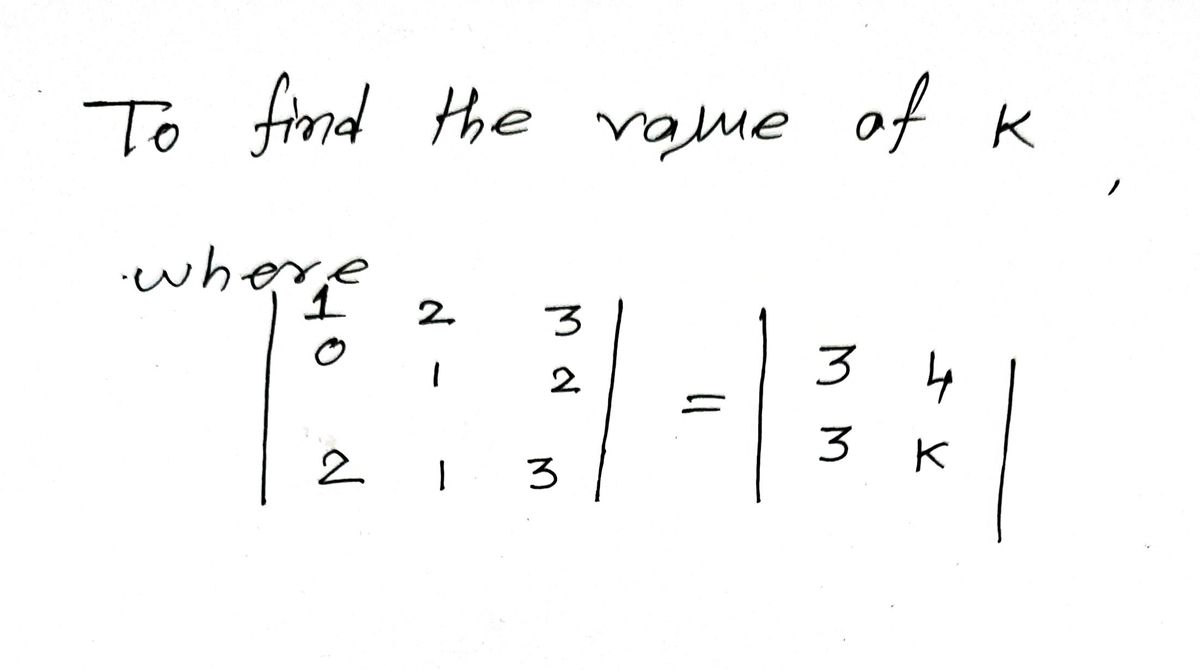 To find the value of K,
where
| 1 2 3 |
| 0 1 2 | = | 3 4 |
| 2 1 3 | | 3 K |